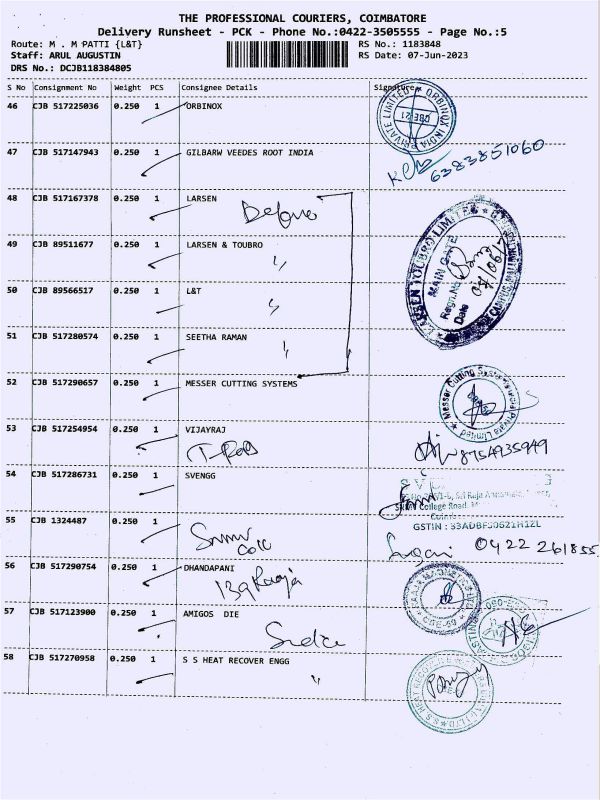 THE PROFESSIONAL COURIERS, COIMBATORE
Delivery Runsheet - PCK - Phone No.:0422-3505555 - Page No.:5
Route: M . M PATTI {L&T} RS No.: 1183848
Staff: ARUL AUGUSTIN RS Date: 07-Jun-2023
DRS No.: DCJB118384805
S No Consignment No Weight PCS Consignee Details Signature
46 CJB 517225036 0.250 1 ORBINOX
ORBINOX INDIA PRIVATE LIMITED CBE-21
47 CJB 517147943 0.250 1 GILBARW VEEDES ROOT INDIA
6383851060
48 CJB 517167378 0.250 1 LARSEN
49 CJB 89511677 0.250 1 LARSEN & TOUBRO
LARSEN TOUBRO LIMITED
MAIN GATE
Regn.No
Date
50 CJB 89566517 0.250 1 L&T
51 CJB 517280574 0.250 1 SEETHA RAMAN
52 CJB 517290657 0.250 1 MESSER CUTTING SYSTEMS
Messer Cutting Systems Private Limited
53 CJB 517254954 0.250 1 VIJAYRAJ
8754935949
54 CJB 517286731 0.250 1 SVENGG
55 CJB 1324487 0.250 1
0422 261855
56 CJB 517290754 0.250 1 DHANDAPANI
57 CJB 517123900 0.250 1 AMIGOS DIE
58 CJB 517270958 0.250 1 S S HEAT RECOVER ENGG